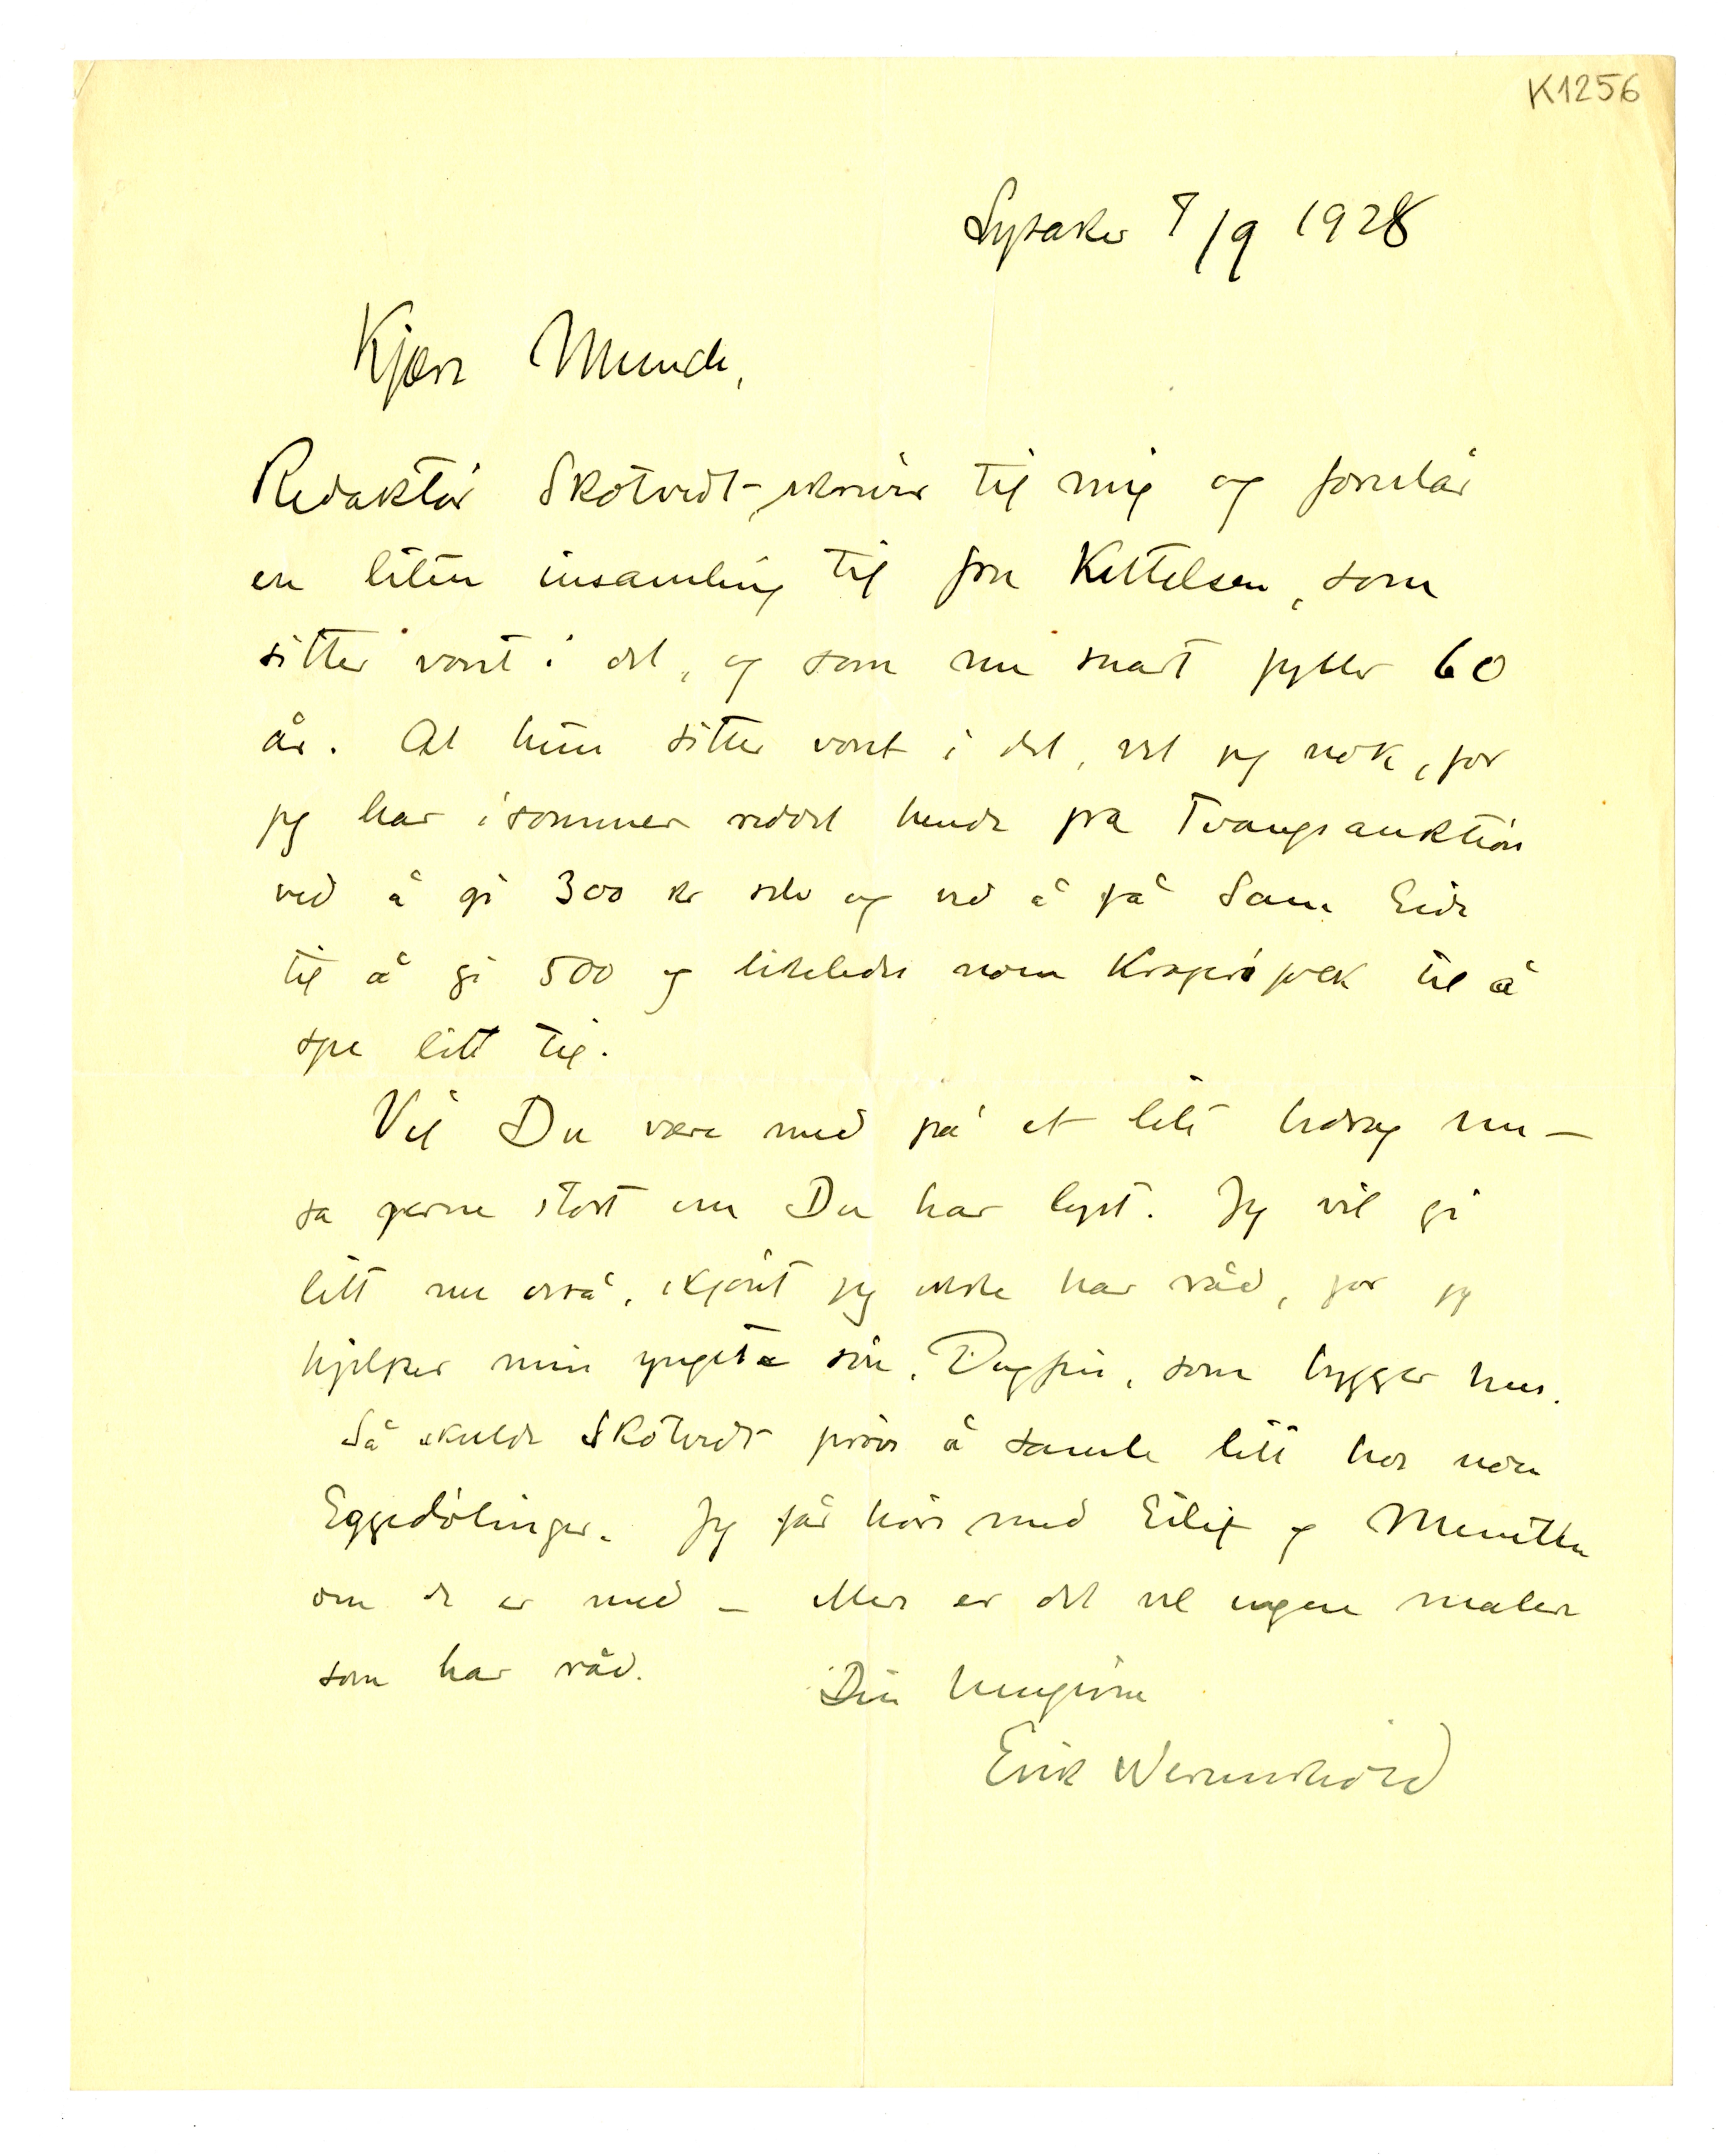 K1256
Lysaker 8/9 1928
Kjære Munch,
Redaktör Skotvedt skriver til mig og foreslår
en liten insamling til fru Kittelsen, som
sitter vont i det, og som nu snart fyller 60
år. At hun sitter vont i det, vet jeg nok, for
jeg har isommer reddet hende fra Tvangsauktion
ved å gi 300 kr selv og ved å få Sam Eide
til å gi 500 og likeledes noen Krageröfolk til å
spe litt til.
Vil Du være med på et lite bidrag nu —
så gjerne stort om Du har lyst. Jeg vil gi
litt nu også, skjönt jeg ikke har råd, for jeg
hjelper min yngste sön, Dagfin, som bygger hus.
Så skulde Skotvedt pröve å samle litt hos noen
Eggedölinger. Jeg får höre med Eilif og Munthe
om de er med — ellers er det vel ingen malere
som har råd.
Din hengivne
Erik Werenskiold